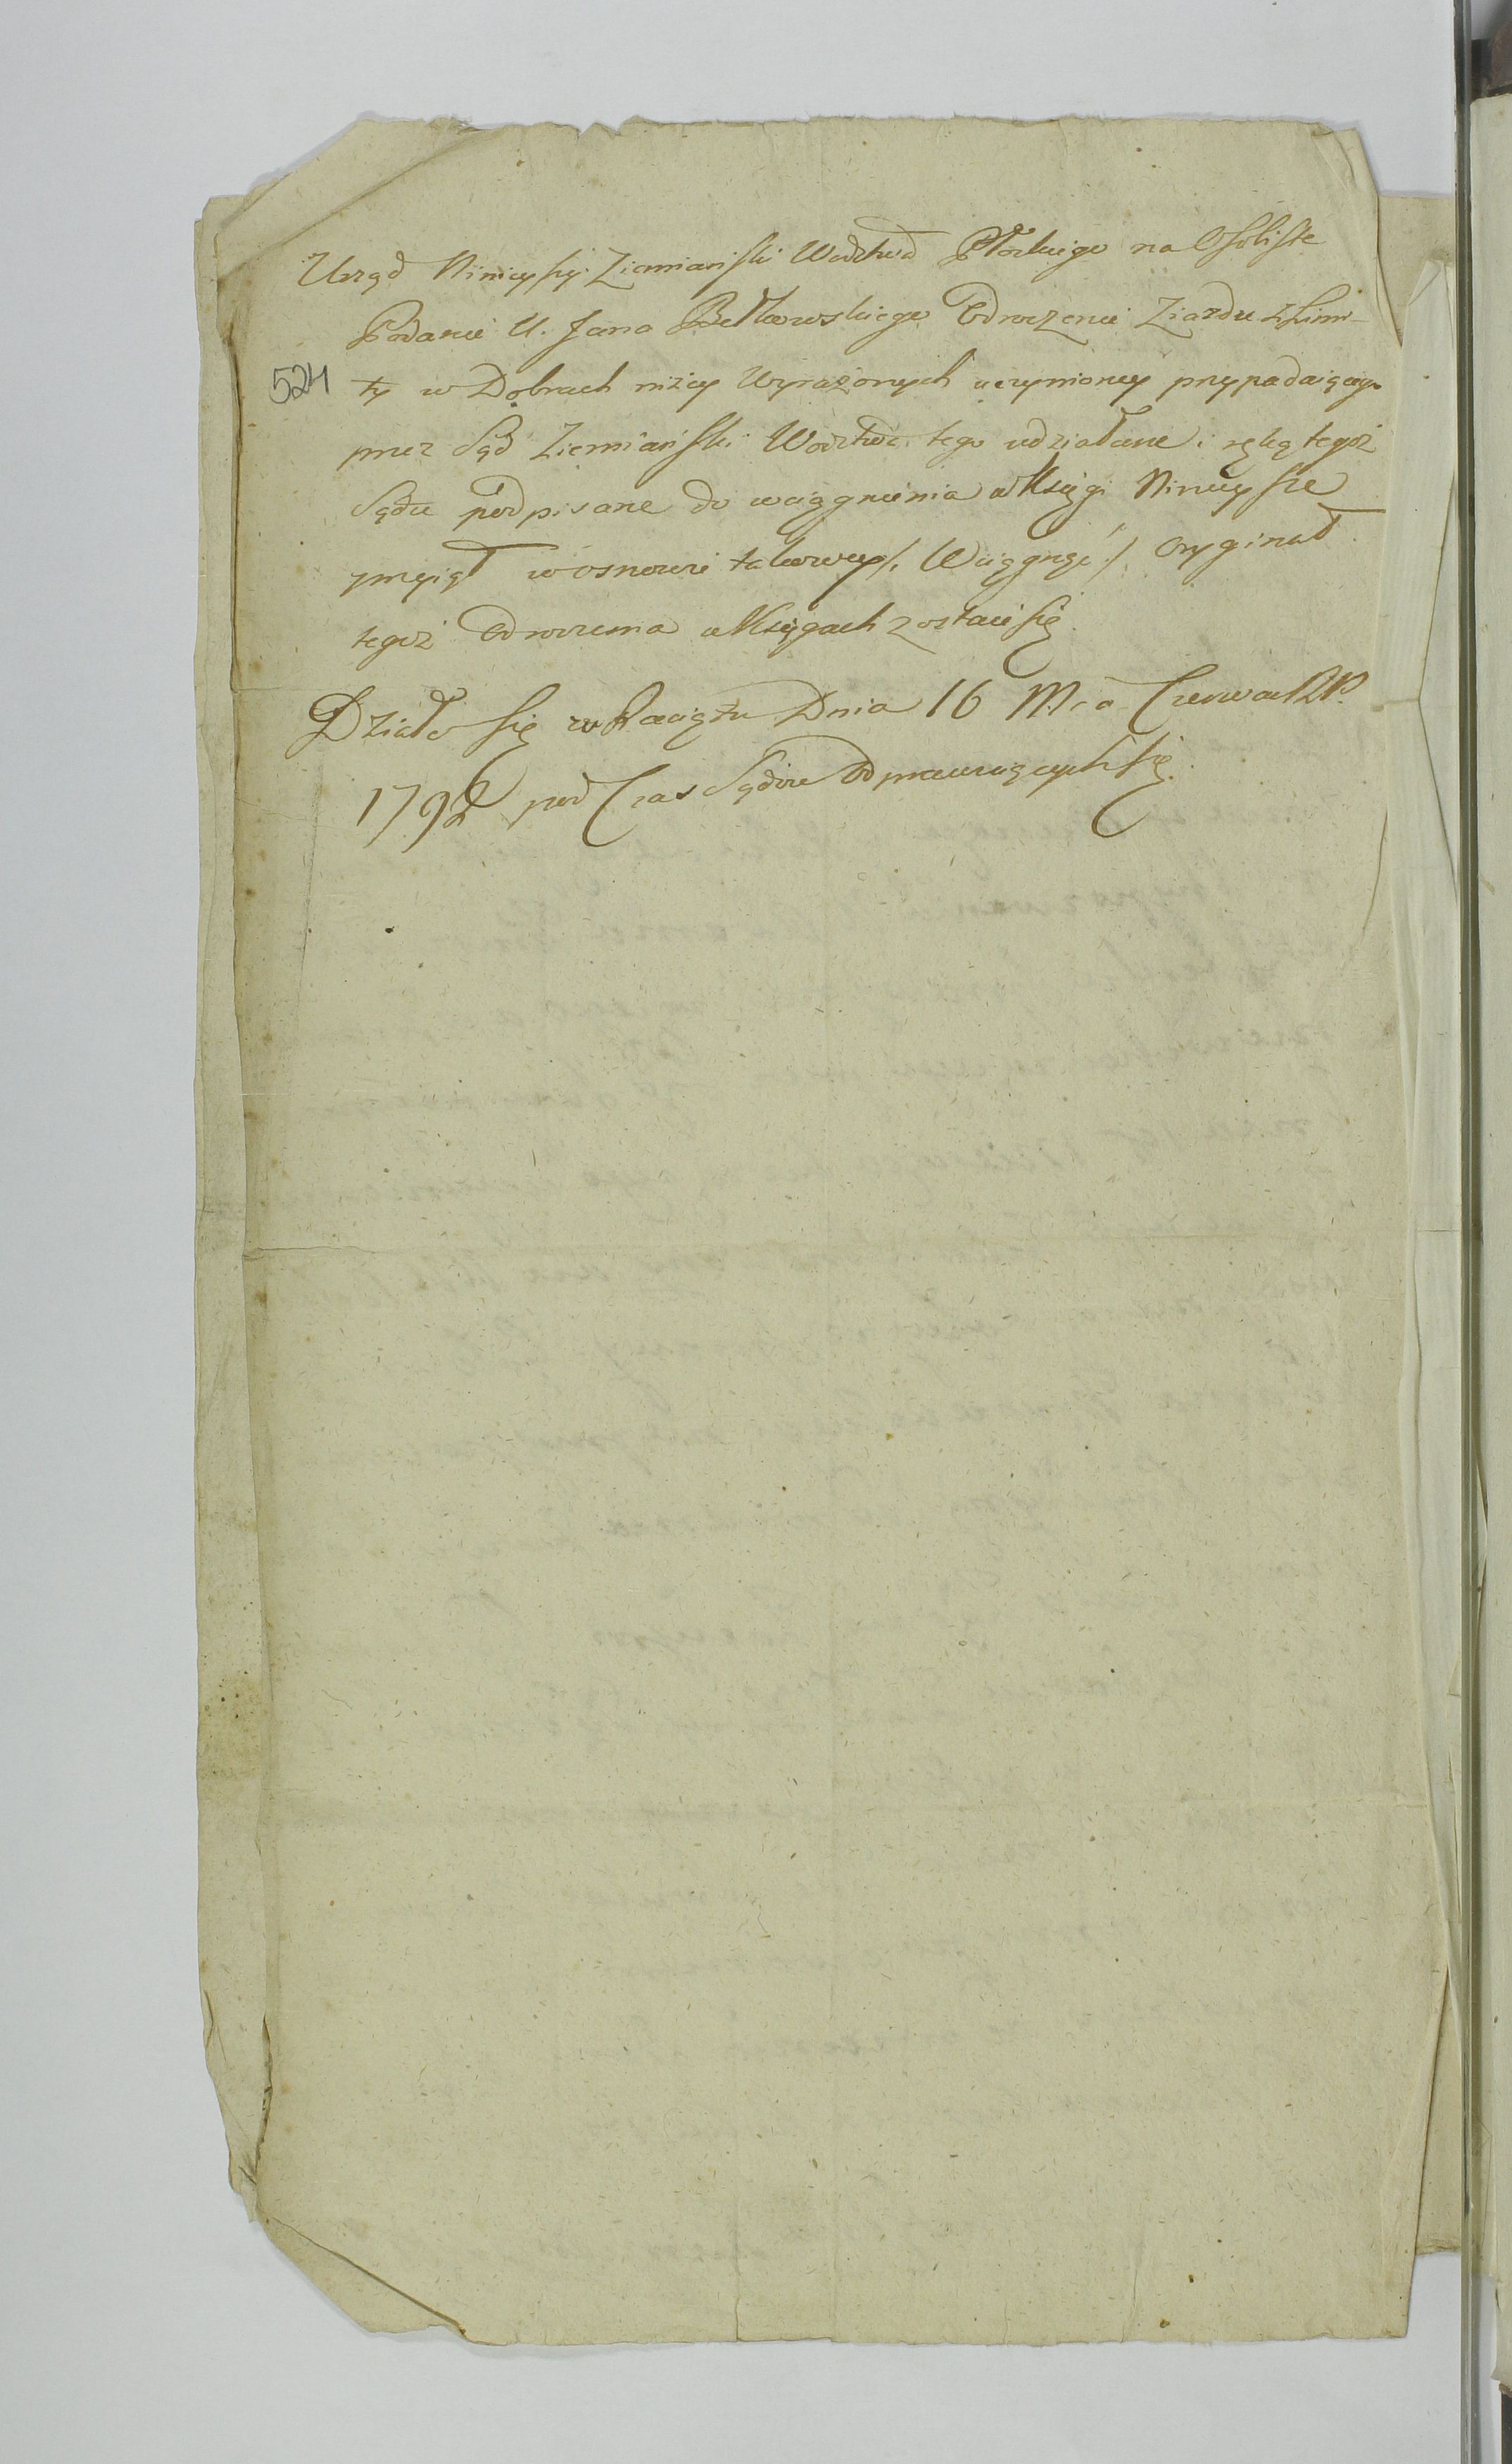 Urząd Ninieyszy Ziemiański Wodztwa Płockiego na Osobiste
Podanie U. Jana Bełkowskiego Odroczenie Ziazdu z Limi-
524
ty w Dobrach niżey Wyrażonych uczynioney przypadaiącego
przez Sąd Ziemiański Wodztwa tego udziałane i ręką tegoż
Sądu podpisane do wciągnienia w Xsięgi Ninieysze
przyiął w osnowie takowey /: Wciągnąć :/ Oryginał
tegoż Odroczenia w Xsięgach zostaie się
Działo się w Raciążu Dnia 16 M-ca Czerwca R.P.
1792 pod Czas Sądów Odprawuiących się.